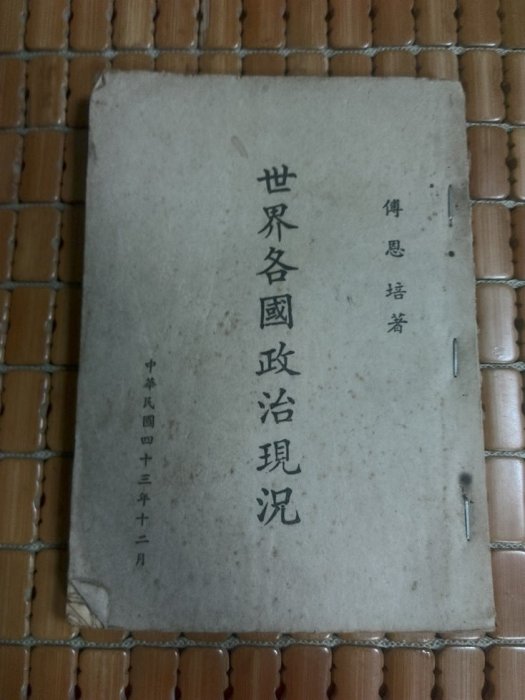 傅恩培著
世界各國政治現況
中華民國四十三年十二月